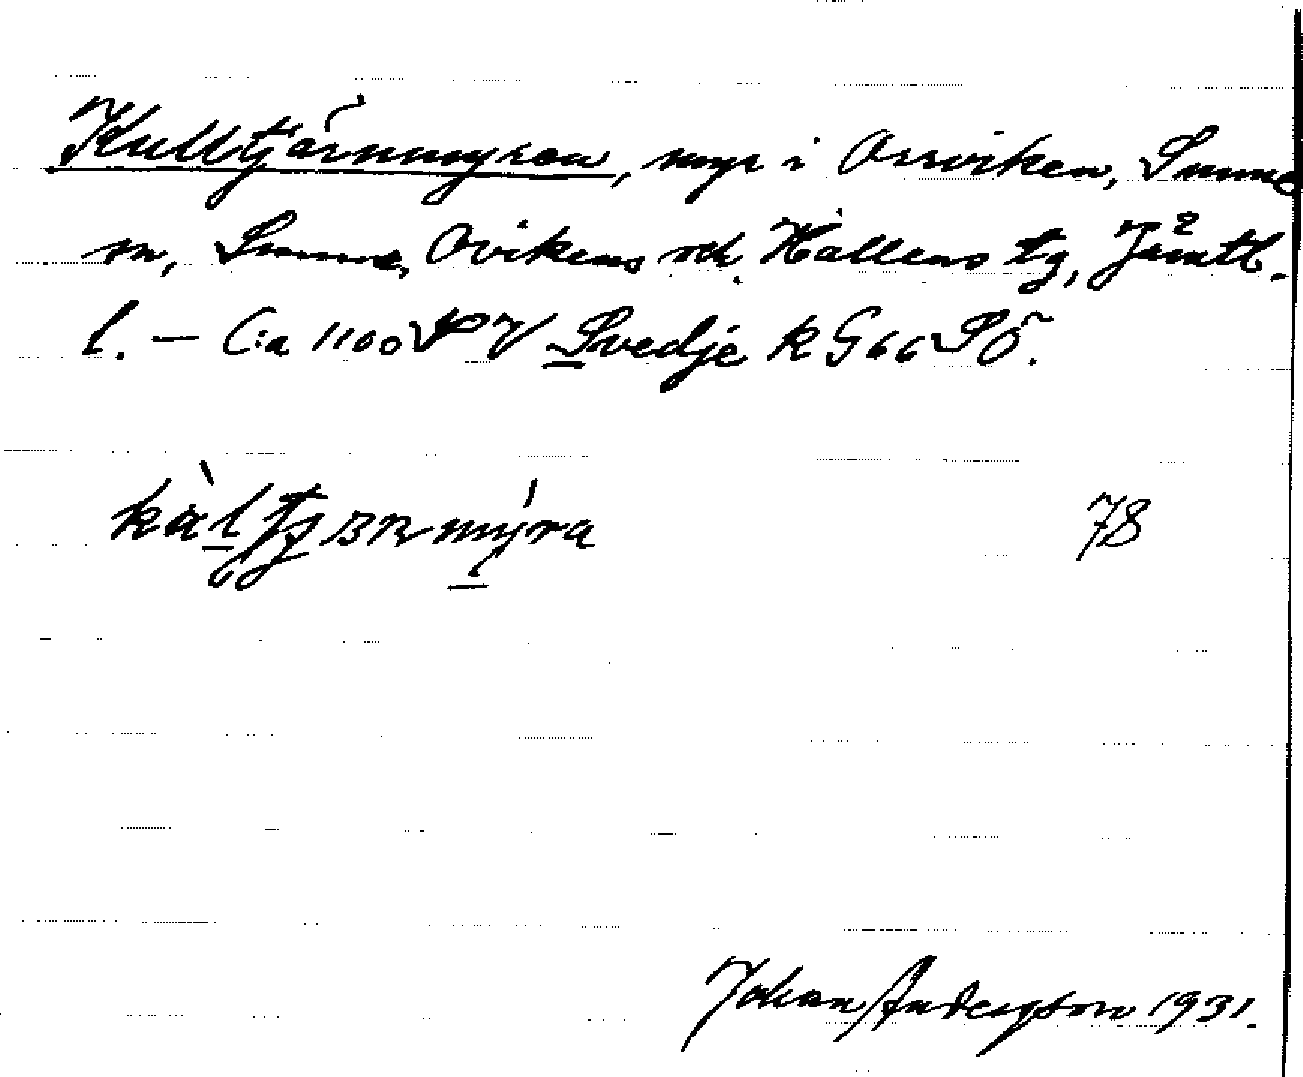 Kulltjärnmyren, myr i Orrviken, Sunne
sn, Sunne, Ovikens och Hallens tg, Jämtl.
l. — C:a 1100 V Svedje k G 66 SÖ.
78
Johan Anderson 1931.